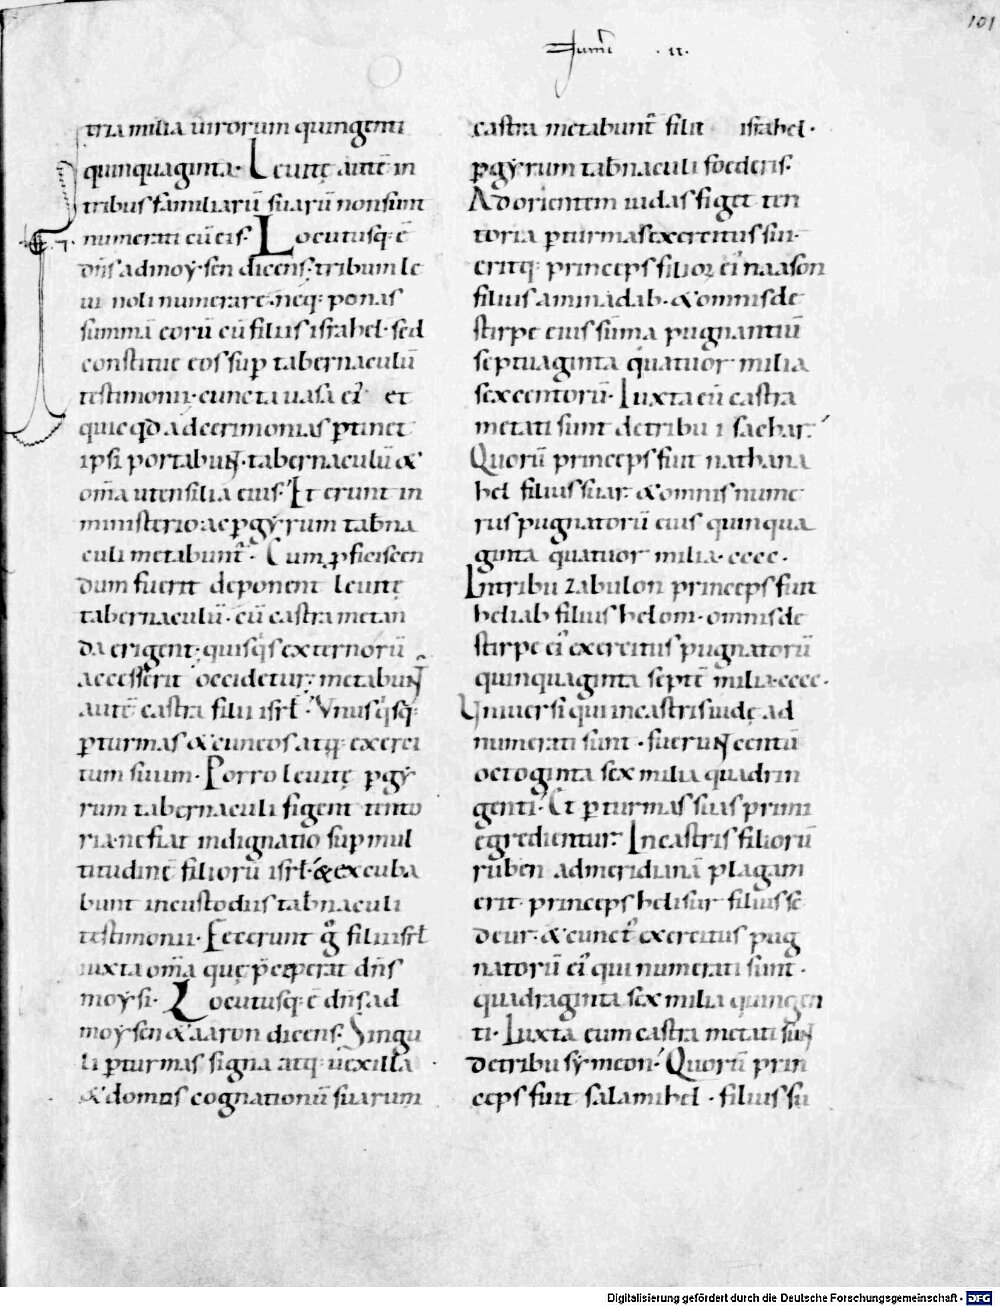 101
Numeri · II ·
tria milia uirorum quingenti
quinquaginta · Leuitę autē in
tribus familiarū suarū non sunt
numerati cū eis · Locutusq; ē
dñs ad moysen dicens · tribum le
ui noli numerare · neq; ponas
summā eorū cū filiis israhel · sed
constitue eos sup tabernaculū
testimonii · cuncta uasa ei' et
quicqd ad cerimonias ptinet
ipsi portabunt · tabernaculū &
oma utensilia eius · Et erunt in
ministerio ac p gyrum tabna
culi metabunt' · Cum pficiscen
dum fuerit deponent leuitę
tabernaculū · cū castra metan
da erigent · quisqs externorū
accesserit occidetur · metabunt'
autē castra filii isrl · Vnusqsq;
p turmas & cuneos atq; exerci
tum suum · Porro leuitę p gy
rum tabernaculi figent tento
ria · ne fiat indignatio sup mul
titudinē filiorū isrl · & excuba
bunt in custodiis tabnaculi
testimonii · Fecerunt g° filii isrl
iuxta oma quę pceperat dñs
moysi · Locutusq; ē dñs ad
moysen & aaron dicens · Singu
li p turmas signa atq; uexilla
& domos cognationū suarum
castra metabunt' filii israhel ·
p gyrum tabnaculi foederis ·
Ad orientem iudas figet ten
toria p turmas exercitus sui ·
eritq; princeps filiorū ei' naason
filius aminadab · & omnis de
stirpe eius sūma pugnantiū
septuaginta quatuor milia
sexcentorū · Iuxta eū castra
metati sunt de tribu isachar ·
Quorū princeps fuit nathana
hel filius suar · & omnis nume
rus pugnatorū eius quinqua
ginta quatuor milia · cccc ·
In tribu zabulon princeps fuit
heliab filius helom · omnis de
stirpe ei' exercitus pugnatorū
quinquaginta septē milia · cccc ·
Uniuersi qui in castris iudę ad
numerati sunt · fuerunt centū
octoginta sex milia quadrin
genti · Et p turmas suas primi
egredientur · In castris filiorū
ruben ad meridianā plagam
erit princeps helisur filius se
deur · & cunct' exercitus pug
natorū ei' qui numerati sunt ·
quadraginta sex milia quingen
ti · Iuxta eum castra metati sunt
de tribu symeon · Quorū prin
ceps fuit salamihel · filius su
Digitalisierung gefördert durch die Deutsche Forschungsgemeinschaft - DFG